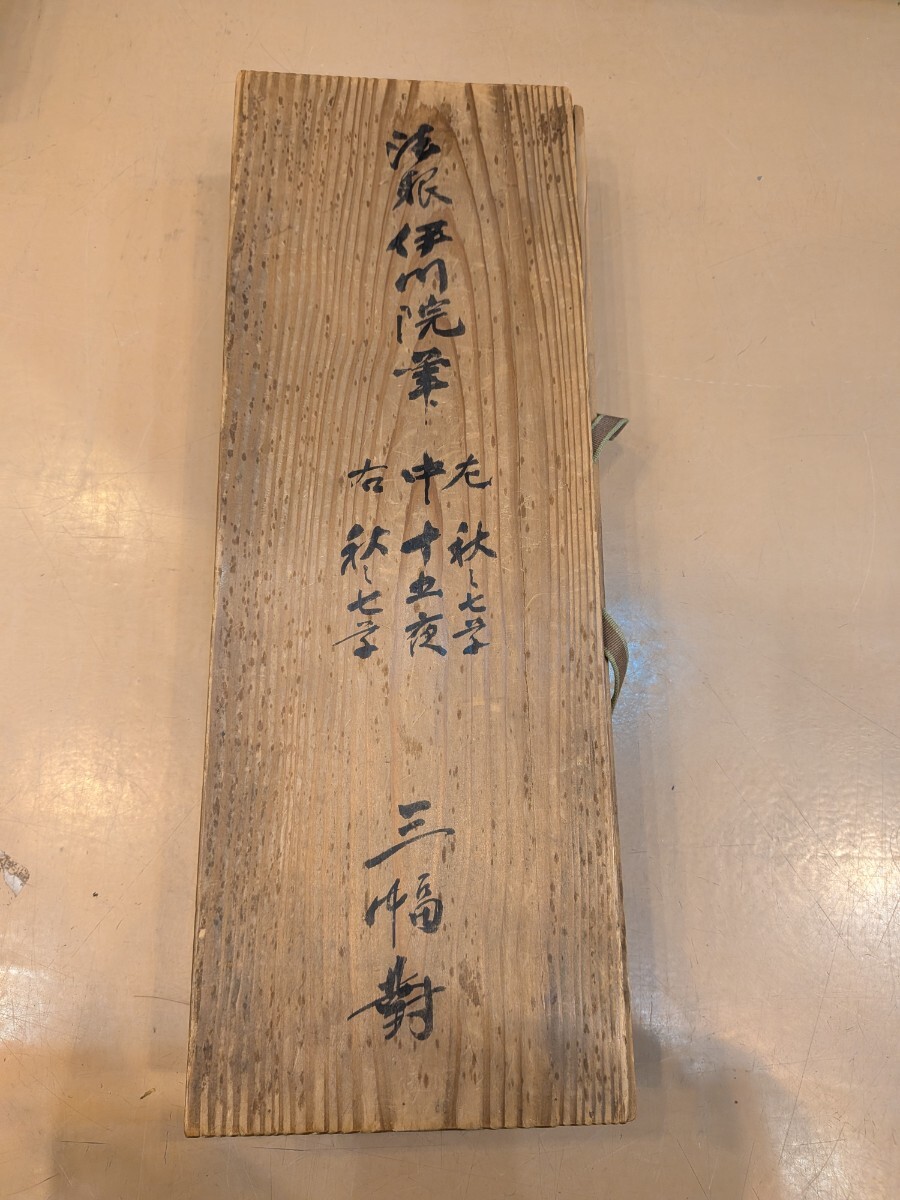 法眼伊川院筆
左 秋之七草
中 十五夜
右 秋之七草
三幅對